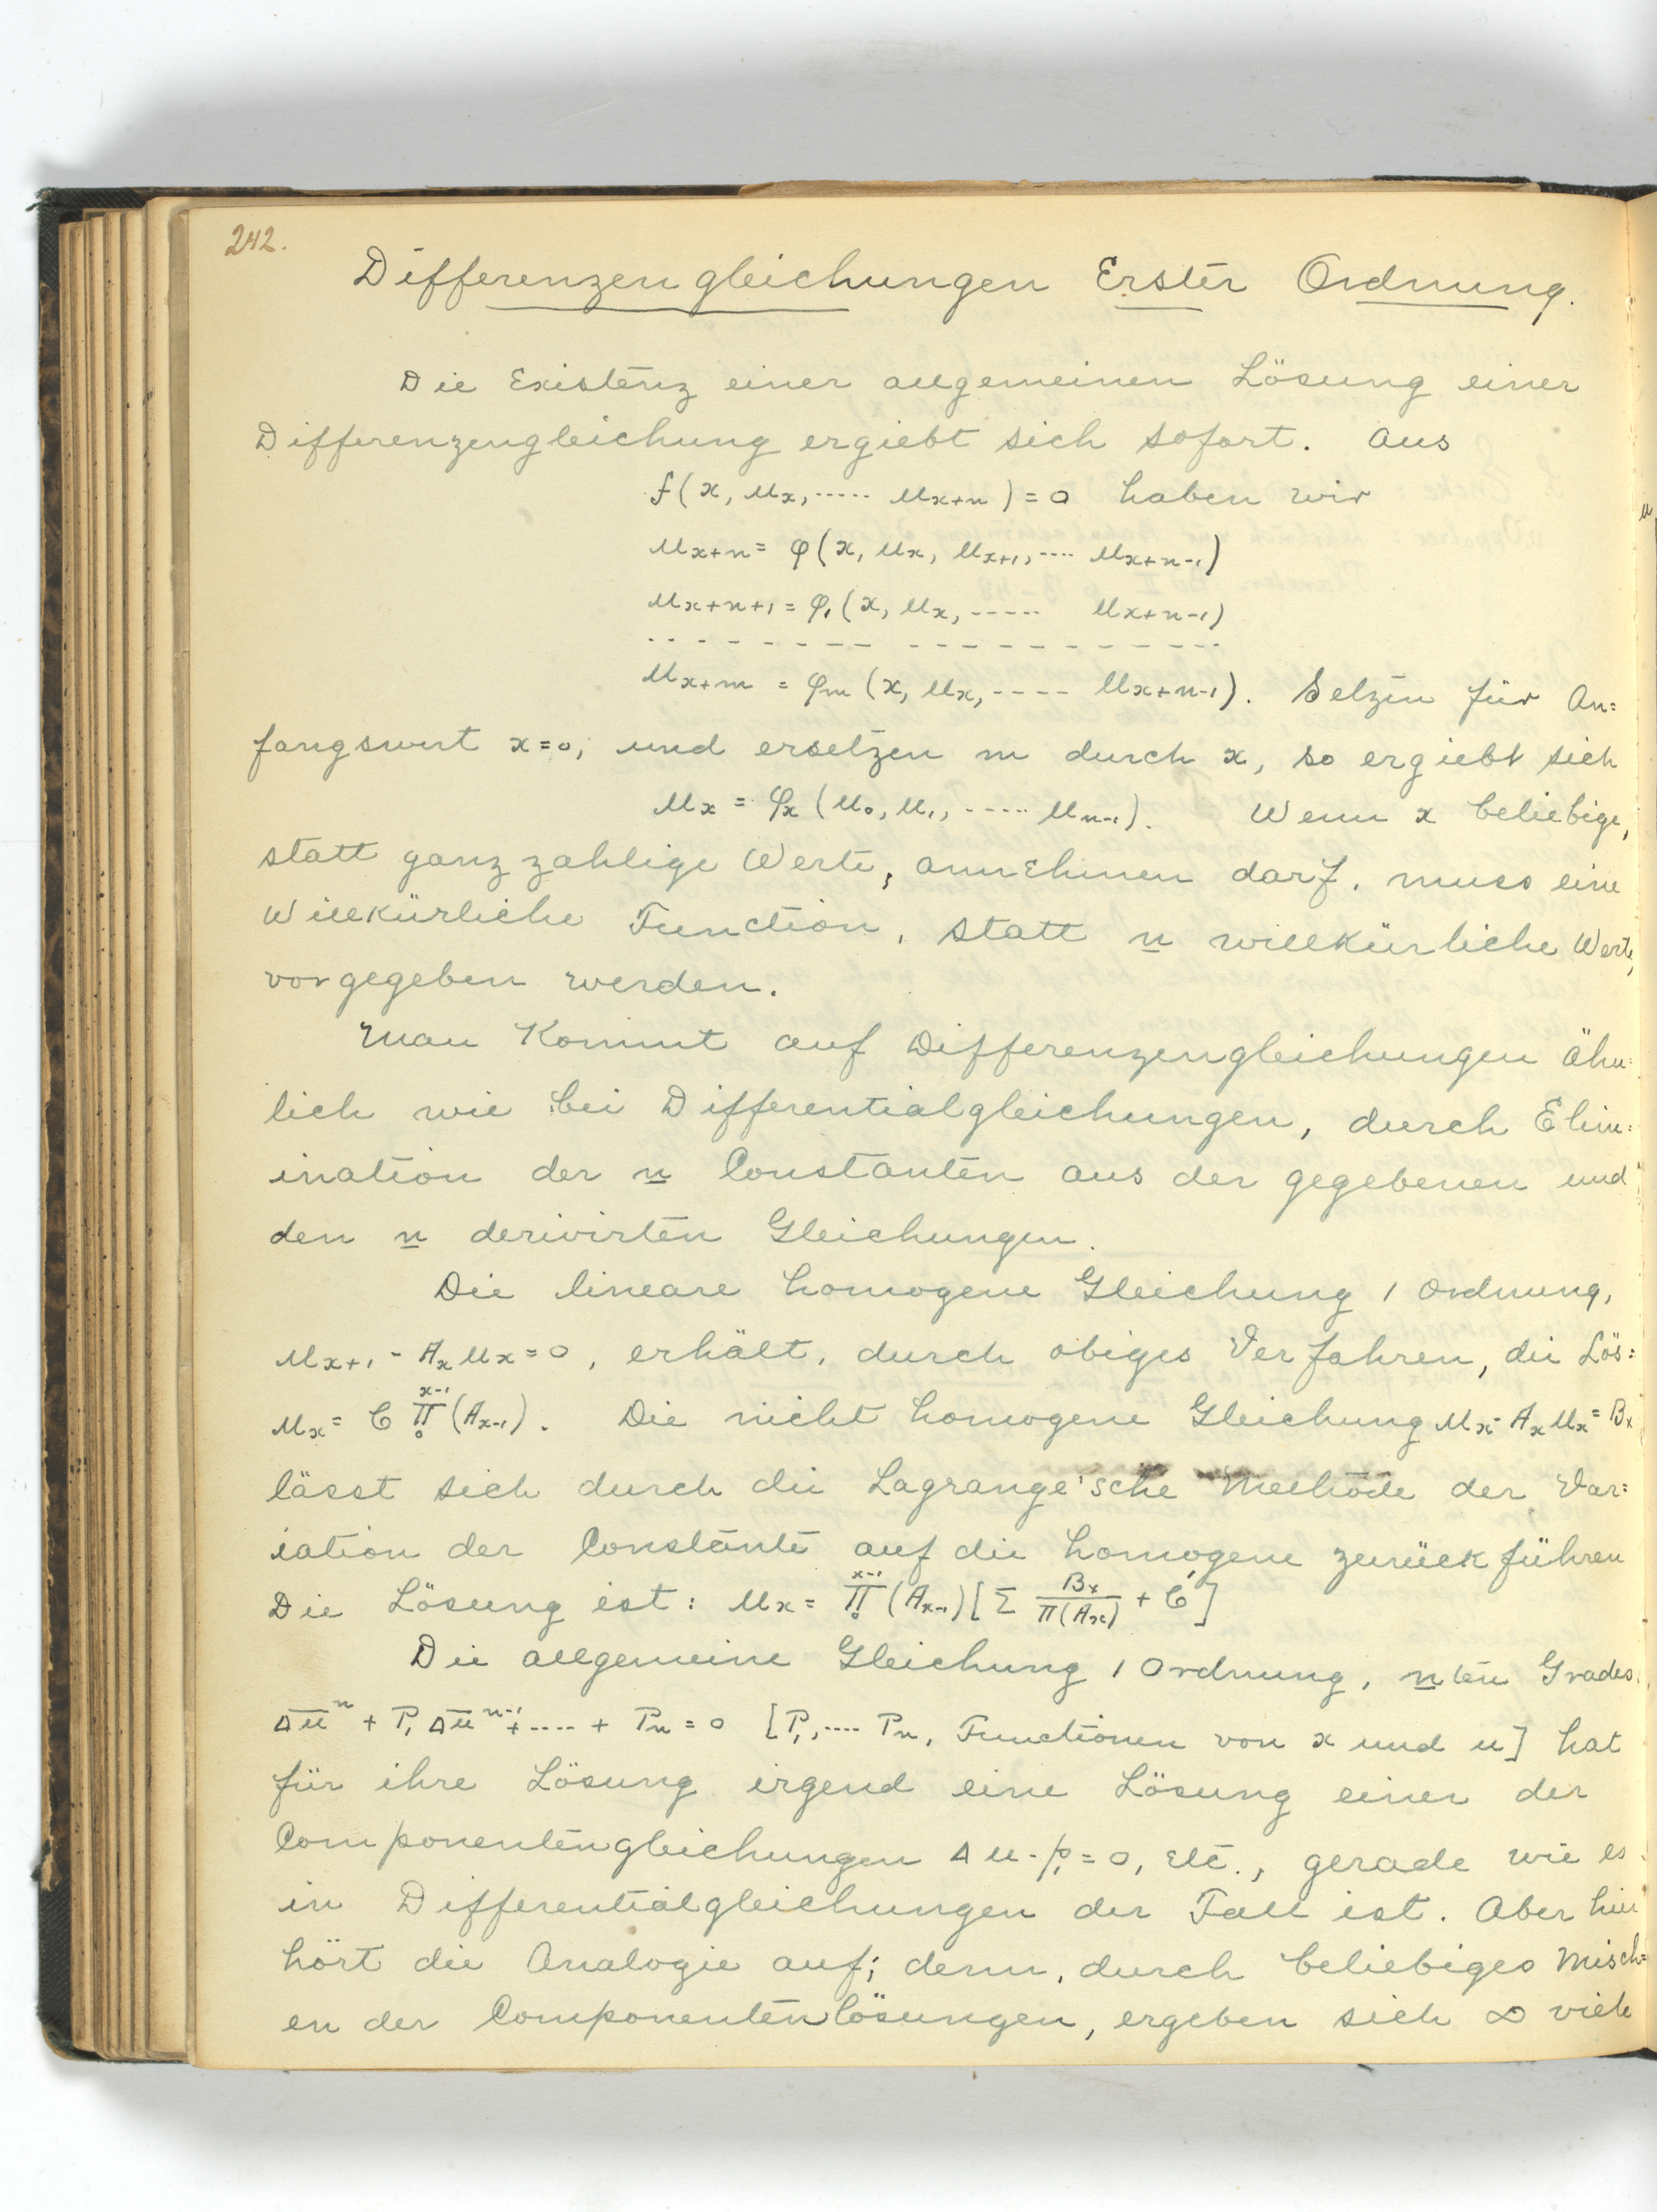 242.
Differenzengleichungen Erster Ordnung.
Die Existenz einer allgemeinen Lösung einer
Differenzengleichung ergiebt sich sofort. Aus
f(x, u_x, ..... u_{x+n}) = 0 haben wir
u_{x+n} = φ(x, u_x, u_{x+1}, .... u_{x+n-1})
u_{x+n+1} = φ_1(x, u_x, ----- u_{x+n-1})
- - - - - - - - - - - - - - - - - -
u_{x+m} = φ_m(x, u_x, ---- u_{x+n-1}). Setzen für An=
fangswert x=0, und ersetzen m durch x, so ergiebt sich
u_x = φ_x(u_0, u_1, ----- u_{n-1}). Wenn x beliebige,
statt ganz zahlige Werte, annehmen darf, muss eine
Willkürliche Function, statt n willkürliche Werte,
vorgegeben werden.
Man Kommt auf Differenzengleichungen ähn=
lich wie bei Differentialgleichungen, durch Elim=
ination der n Constanten aus der gegebenen und
den n derivirten Gleichungen.
Die lineare homogene Gleichung 1 Ordnung,
u_{x+1} - A_x u_x = 0, erhält, durch obiges Verfahren, die Lös=
u_x = C ∏_0^{x-1}(A_{x-1}). Die nicht homogene Gleichung u_x - A_x u_x = B_x
lässt sich durch die Lagrange'sche Methode der Var=
iation der Constante auf die homogene zurückführen
Die Lösung ist: u_x = ∏_0^{x-1}(A_{x-1})[Σ B_x/∏(A_x) + C']
Die allgemeine Gleichung 1 Ordnung, nten Grades,
Δu^n + P_1 Δu^{n-1} + .... + P_n = 0 [P_1, .... P_n, Functionen von x und u] hat
für ihre Lösung irgend eine Lösung einer der
Componentengleichungen Δu - p_1 = 0, etc., gerade wie es
in Differentialgleichungen der Fall ist. Aber hier
hört die Analogie auf; denn, durch beliebiges Misch=
en der Componentenlösungen, ergeben sich ∞ viele